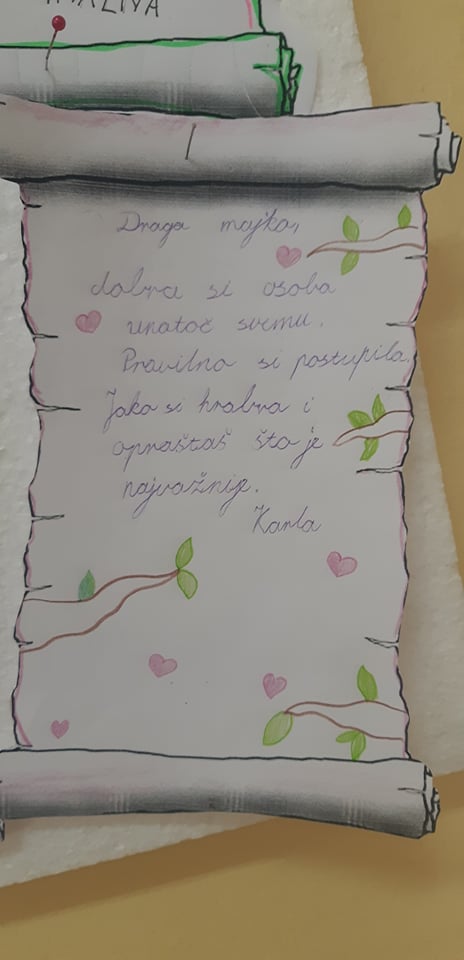 Draga majko,
dobra si osoba
unatoč svemu.
Pravilno si postupila.
Jako si hrabra i
opraštaš što je
najvažnije.
Karla